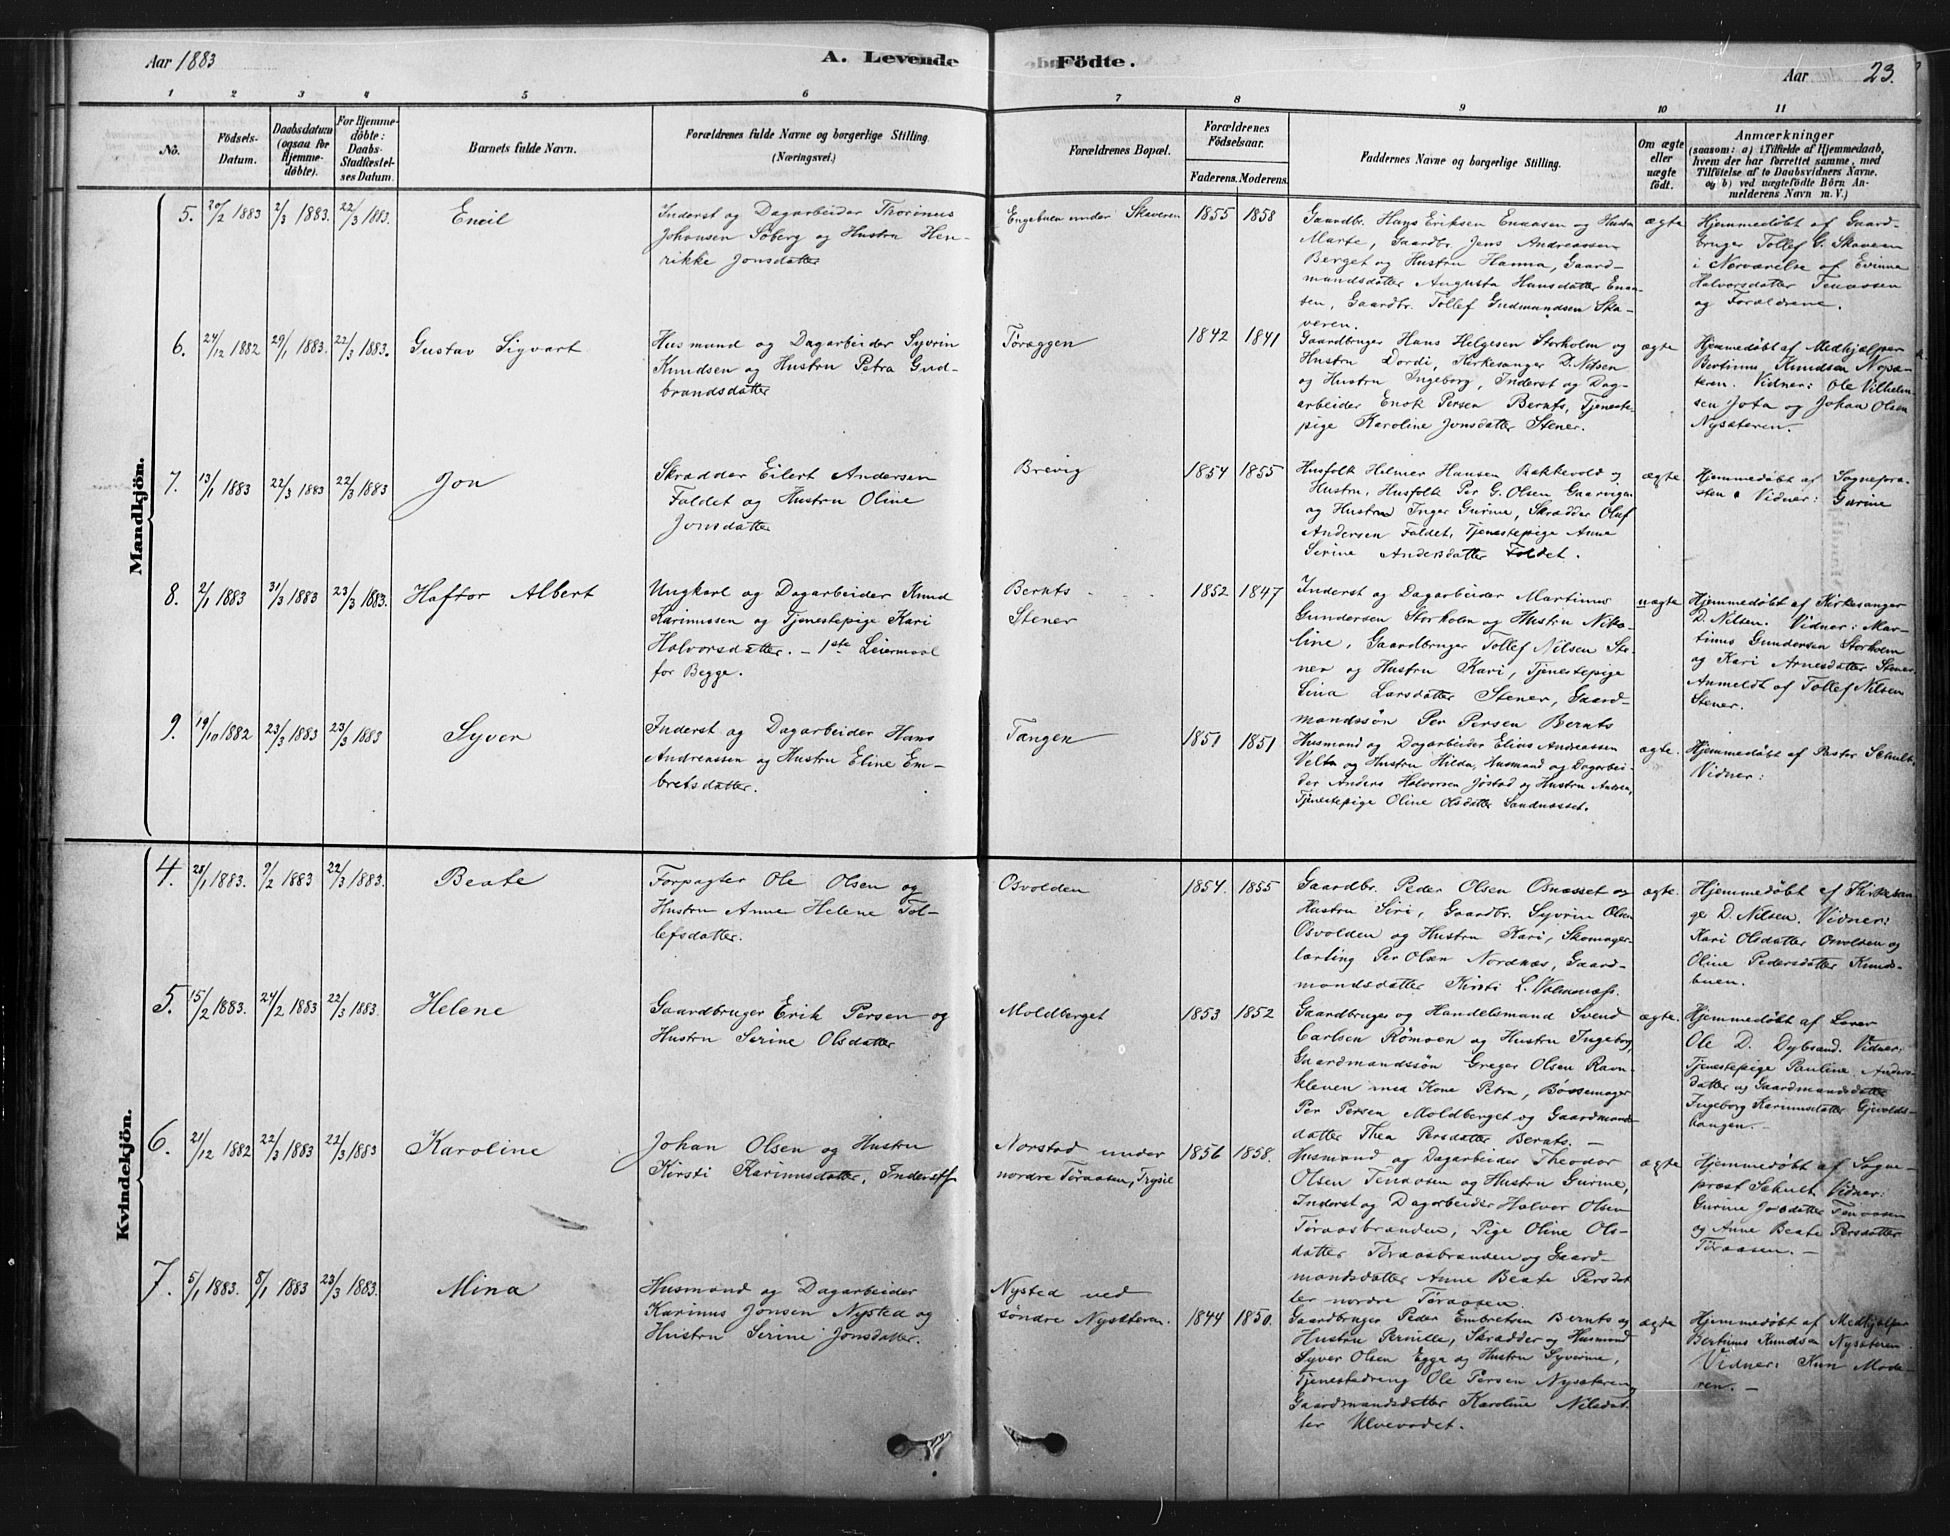 Aar 1883
A. Levende
Födte.
Aar
23.
1 2 3 4 5 6 7 8 9 10 11
No.
Födsels-
Datum.
Daabsdatum
(ogsaa for
Hjemme-
döbte).
For Hjemme-
döbte:
Daabs-
Stadfæstel-
ses Datum.
Barnets fulde Navn.
Forældrenes fulde Navne og borgerlige Stilling.
(Næringsvei.)
Forældrenes Bopæl.
Forældrenes
Födselsaar.
Faderens. Moderens.
Faddernes Navne og borgerlige Stilling.
Om ægte
eller
uægte
födt.
Anmærkninger
(saasom: a) i Tilfælde af Hjemmedaab,
hvem der har forrettet samme, med
Tilföielse af to Daabsvidners Navne.
og b) ved uægtefödte Börn An-
melderens Navn m. V.)
Mandkjön.
5. 20/2 1883 2/3 1883. 22/3 1883. Emil
Inderst og Dagarbeider Thorinus
Johansen Söberg og Hustru Hen-
rikke Jonsdatter
Engebulen under Skaveren
1855 1858
Gaardbr. Hans Eriksen Enaasen og Hustru
Marte, Gaardbr. Jens Andreassen
Berget og Hustru Hanna, Gaard-
mandsdatter Augusta Hansdatter Enaa-
sen, Gaardbr. Tollef Gudmundsen Ska-
veren.
ægte
Hjemmedöbt af Gaard-
bruger Tollef G. Skaveren
i Nærværelse af
Halvorsdatter Tenaasen
og Forældrene.
6. 24/12 1882 29/1 1883. 22/3 1883. Gustav Sigvart
Husmand og Dagarbeider Syvrin
Knudsen og Hustru Petra Gud-
brandsdatter
Töraggen
1842 1841
Gaardbruger Hans Helgesen Storholm og
Hustru Dordi, Kirkesanger D. Nilsen
og Hustru Ingeborg, Inderst og Dag-
arbeider Enok Persen Bernts, Tjeneste-
pige Karoline Jonsdatter Stener.
ægte
Hjemmedöbt af Medhjælper
Bertinus Knudsen Nysæ-
teren. Vidner: Ole Vilhelm-
sen Jota og Johan Olsen
Nysæteren.
7. 13/1 1883 22/3 1883 22/3 1883 Jon
Skrædder Eilert Andersen
Faldet og Hustru Oline
Jonsdatter
Brevig
1854 1855
Husfolk Helmer Hansen Bakkevold og
Hustru, Husfolk Per G. Olsen
og Hustru Inger Gurine, Skrædder Oluf
Andersen Faldet, Tjenestepige Anne
Serine Andersdatter Faldet.
ægte
Hjemmedöbt af Sognepræ-
sten. Vidner: Gurine
8. 2/1 1883 31/3 1883 23/3 1883. Haftor Albert
Ungkarl og Dagarbeider Knud
Karinussen og Tjenestepige Kari
Halvorsdatter. - 1ste Leiermaal
for Begge.
Bernts
Stener
1852 1847
Inderst og Dagarbeider Martinus
Gundersen Storholm og Hustru Niko-
line, Gaardbruger Tollef Nilsen Ste-
ner og Hustru Kari, Tjenestepige
Lina Larsdatter Stener, Gaard-
mandssön Per Persen Bernts
uægte
Hjemmedöbt af Kirkesanger
D. Nilsen. Vidner: Mar-
tinus Gundersen Storholm
og Kari Arnesdatter Stener.
Anmeldt af Tollef Nilsen
Stener.
9. 19/10 1882 23/3 1883 23/3 1883 Syver
Inderst og Dagarbeider Hans
Andreassen og Hustru Eline Em-
bretsdatter.
Tangen
1851 1851
Husmand og Dagarbeider Elias Andreassen
Velta og Hustru Hilda, Husmand og Dagarbei-
der Anders Halvorsen Jöstad og Hustru
Tjenestepige Oline Olsdatter Sandnæsset.
ægte.
Hjemmedöbt af Pastor Schult.
Vidner:
Kvindekjön.
4. 28/1 1883. 9/2 1883 22/3 1883. Beate
Forpagter Ole Olsen og
Hustru Anne Helene Tol-
lefsdatter.
Osvolden
1854. 1855
Gaardbr. Peder Olsen Osnæsset og
Hustru Siri, Gaardbr. Syvrin Olsen
Osvolden og Hustru Kari, Skomager-
lærling Per Olsen Nordnæs, Gaard-
mandsdatter Kirsti L.
ægte.
Hjemmedöbt af Kirkesan-
ger D. Nilsen. Vidner:
Kari Olsdatter Osvolden og
Oline Pedersdatter Knuds-
buen.
5. 15/2 1883. 24/2 1883 22/3 1883. Helene
Gaardbruger Erik Persen og
Hustru Serine Olsdatter
Moldberget
1853 1852
Gaardbruger og Handelsmand Svend
Carlsen Römoen og Hustru Ingeborg,
Gaardmandssön Greger Olsen Ravn-
kleven med Kone Petra, Bössemager
Per Persen Moldberget og Gaardmands-
datter Thea Persdatter Bernts. -
ægte.
Hjemmedöbt af Lærer
Ole D. Dybsand. Vidner:
Tjenestepige Pauline Anders-
datter og Gaardmandsdatter
Ingeborg Karinusdatter Gjevolds-
hangen. -
6. 21/12 1882 22/3 1883 22/3 1883 Karoline
Johan Olsen og Hustru
Kirsti Karinusdatter, Inderstf.
Norstad under
nordre Töraasen, Trysil
1856 1858.
Husmand og Dagarbeider Theodor
Olsen Tenaasen og Hustru Gurine,
Inderst og Dagarbeider Halvor Olsen
Töraasbranden, Pige Oline Ols-
datter Töraasbranden og Gaard-
mandsdatter Anne Beate Persdat-
ter nordre Töraasen.
ægte
Hjemmedöbt af Sogne-
præst Schult. Vidner:
Gurine Tenaasen
og Anne Beate Persdatter
Töraasen. -
7. 5/1 1883. 8/1 1883 23/3 1883. Mina
Husmand og Dagarbeider
Karinus Jonsen Nysted og
Hustru Serine Jonsdatter.
Nysted ved
söndre Nysæteren.
1844 1850.
Gaardbruger Peder Embretsen Bernts og
Hustru Pernille, Skrædder og Husmand
Syver Olsen Egge og Hustru Syverine,
Tjenestedreng Ole Persen Nysæteren,
Gaardmandsdatter Karoline Nilsdat-
ter Ulvevadet.
ægte
Hjemmedöbt af Medhjælper
Bertinus Knudsen Nysæteren.
Vidner: Kun Mode-
ren. -